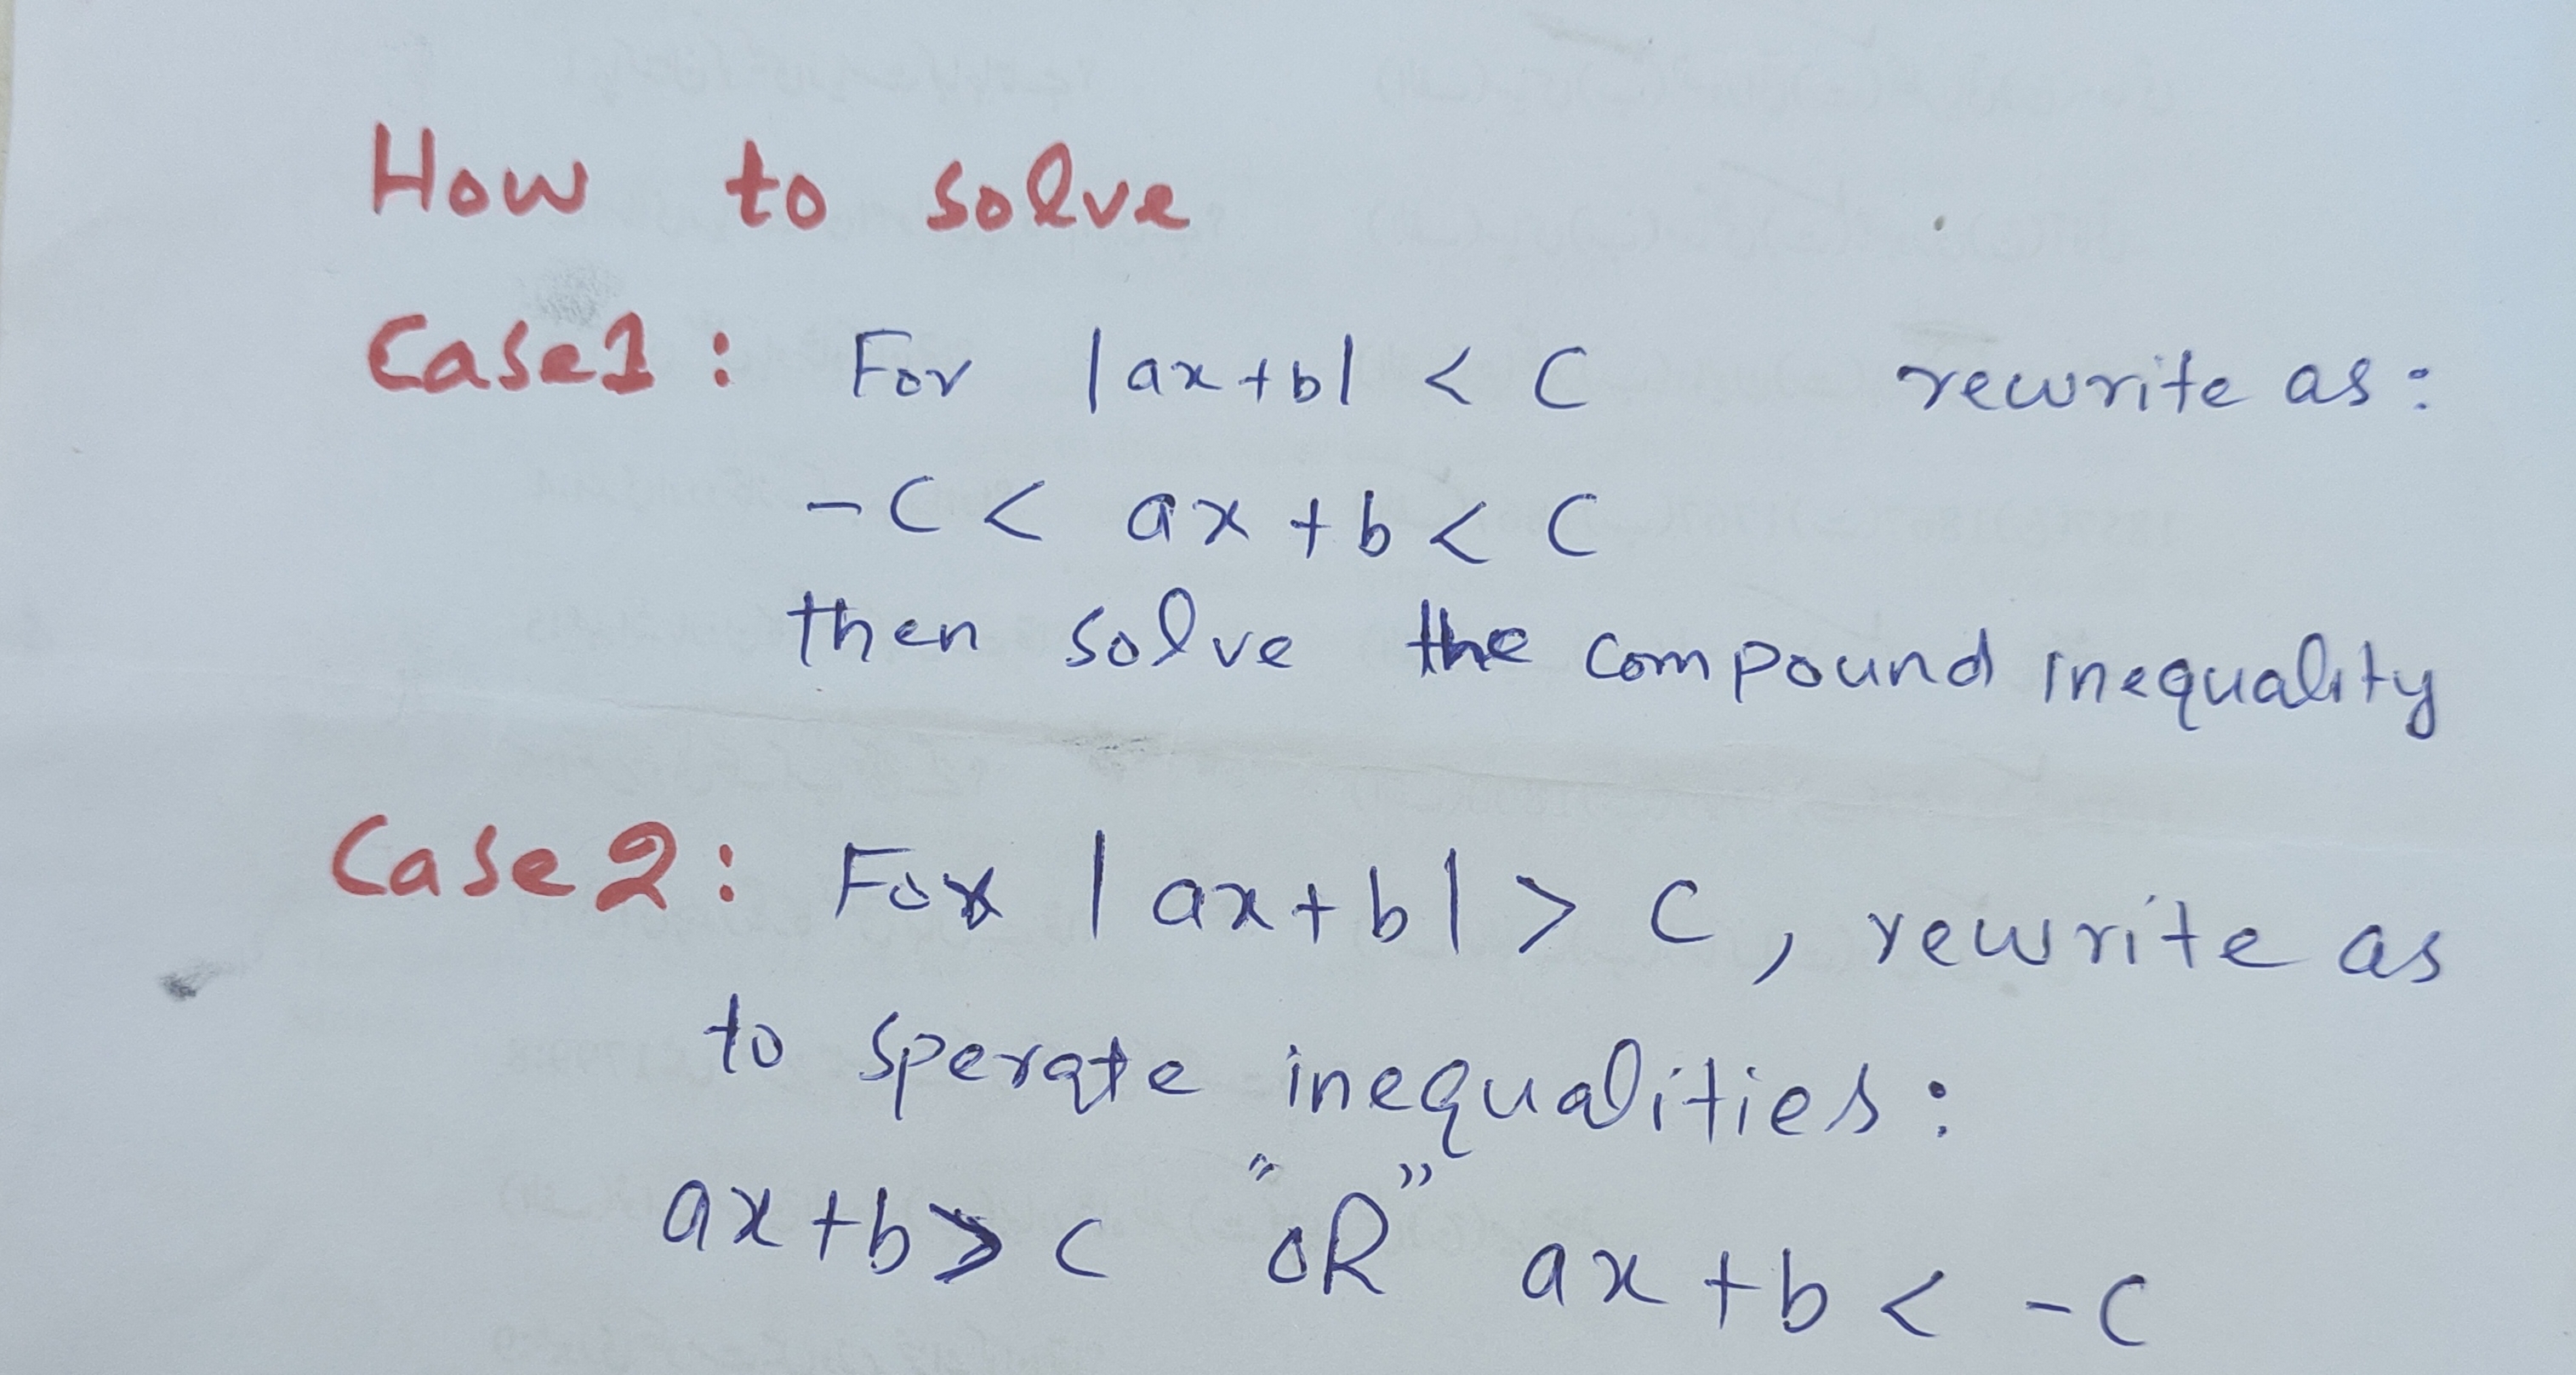 How to solve
Case1: For |ax+b| < C rewrite as:
-C < ax+b < C
then solve the compound inequality
Case2: For |ax+b| > C, rewrite as
to sperate inequalities:
ax+b > C "OR" ax+b < -C